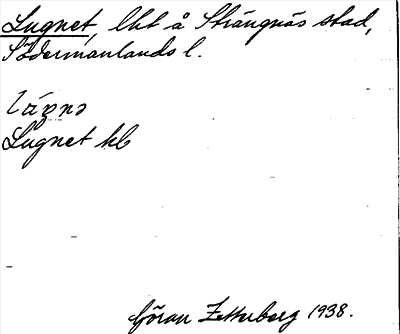 Lugnet, lht å Strängnäs stad,
Södermanlands l.
Lugnet hb
Göran Zetterberg 1938.